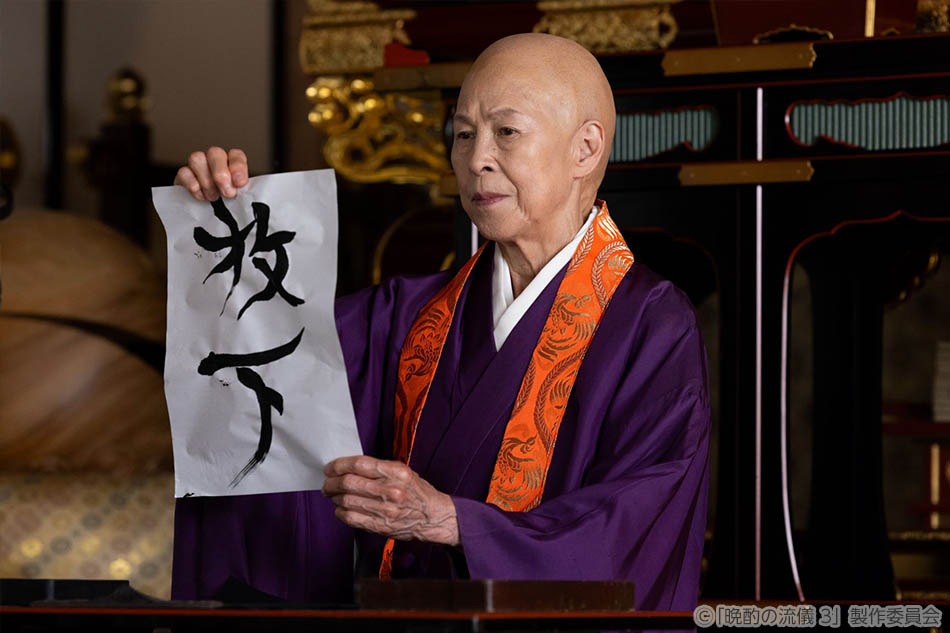 放
下
©「晩酌の流儀 3」製作委員会